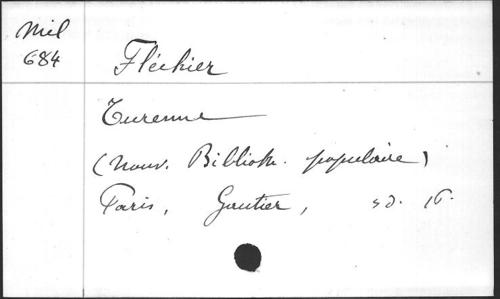 Mil
684
Fléchier
Turenne
(Nouv. Biblioth. populaire)
Paris, Gautier, sd. 16.